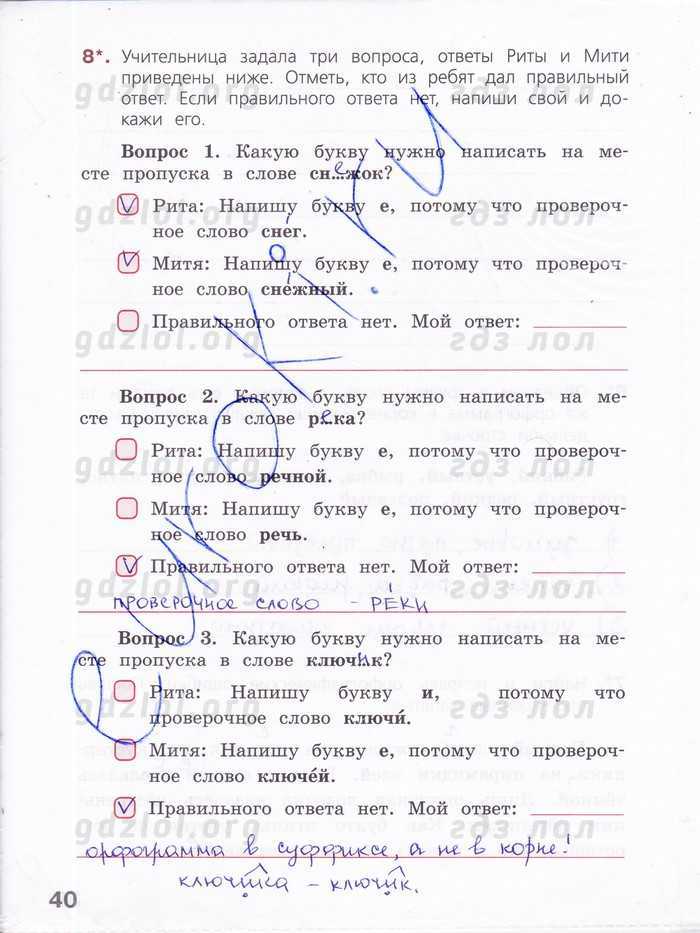 8*. Учительница задала три вопроса, ответы Риты и Мити
приведены ниже. Отметь, кто из ребят дал правильный
ответ. Если правильного ответа нет, напиши свой и до-
кажи его.
gdzlol.org гдз лол
Вопрос 1. Какую букву нужно написать на ме-
сте пропуска в слове сн..ежок?
Рита: Напишу букву е, потому что провероч-
ное слово снег.
gdzlol.org гдз лол
Митя: Напишу букву е, потому что провероч-
ное слово снежный.
Правильного ответа нет. Мой ответ:
gdzlol.org гдз лол
Вопрос 2. Какую букву нужно написать на ме-
сте пропуска в слове река?
Рита: Напишу букву е, потому что провероч-
gdzlol.org гдз лол
ное слово речной.
Митя: Напишу букву е, потому что провероч-
ное слово речь.
Правильного ответа нет. Мой ответ:
gdzlol.org гдз лол
проверочное слово - РЕ́КИ
Вопрос 3. Какую букву нужно написать на ме-
сте пропуска в слове ключик?
Рита: Напишу букву и, потому что
gdzlol.org гдз лол
проверочное слово ключи́.
Митя: Напишу букву е, потому что провероч-
ное слово ключе́й.
Правильного ответа нет. Мой ответ:
gdzlol.org гдз лол
орфограмма в суффиксе, а не в корне!
ключика - ключик.
40